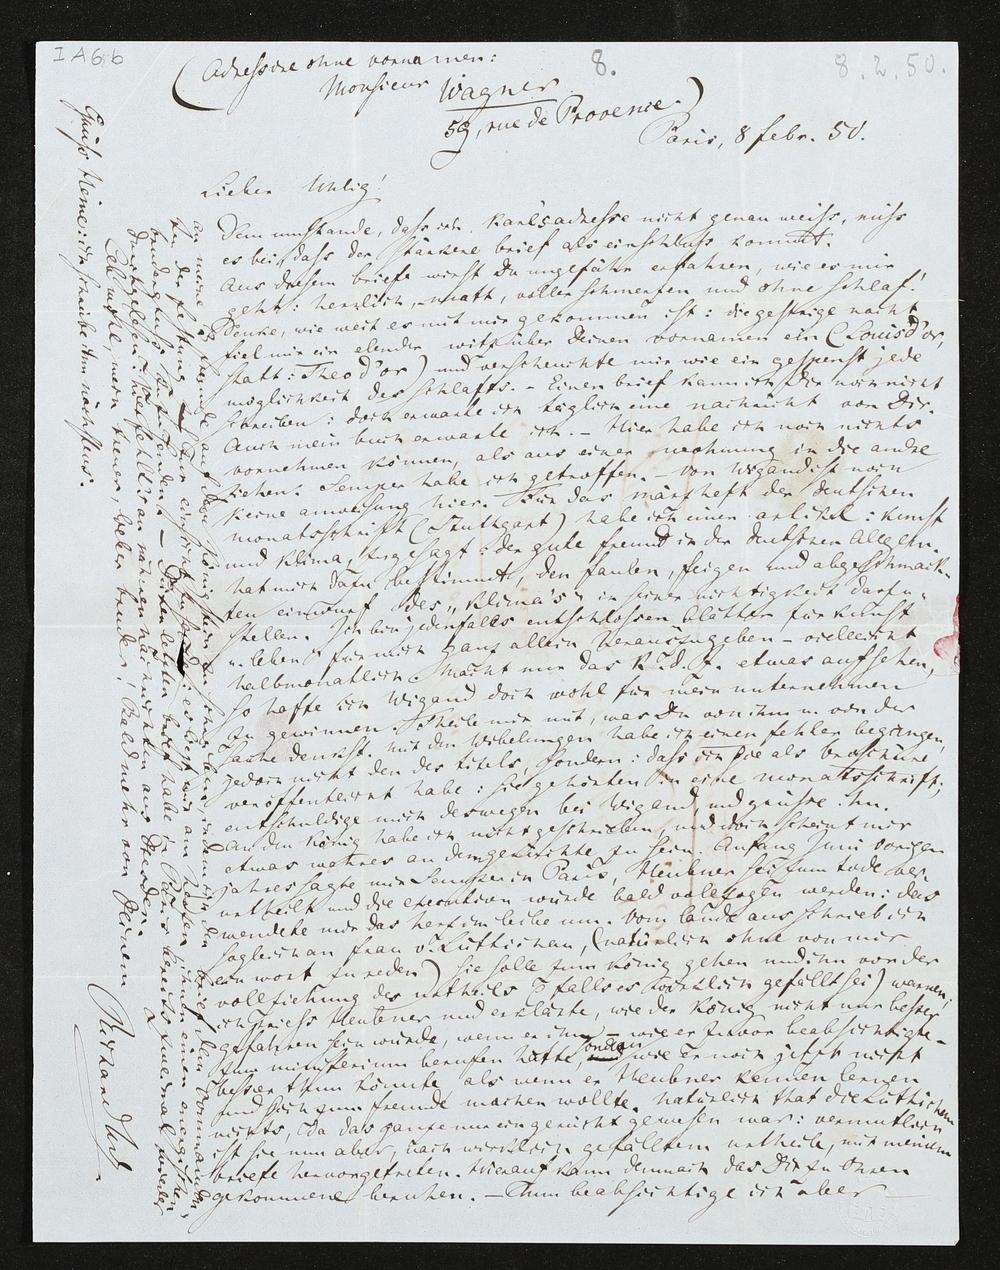 I A 6, b
8.
8. 2. 50.
(Adresse ohne vornamen:
Monsieur Wagner
59, rue de Provence.)
Paris, 8 febr. 50.
Lieber Uhlig!
Dem umstande, dass ich Karls adresse nicht genau weiss, miss
es bei, dass der stärkere brief als einschluss kommt.
Aus diesem briefe wirst Du ungefähr erfahren, wie es mir
geht: herzlich matt, voller schmerzen und ohne schlaf!
Denke, wie weit es mit mir gekommen ist: die gestrige nacht
fiel mir ein elender witz über Deinen vornamen ein (Louisd'or,
statt: Theod'or) und verscheuchte mir wie ein gespenst jede
möglichkeit des schlafs. – Einen brief kann ich Dir noch nicht
schreiben: doch erwarte ich täglich eine nachricht von Dir.
Auch mein buch erwarte ich. – Hier habe ich noch nichts
vornehmen können, als aus einer wohnung in die andre
ziehen. Semper habe ich getroffen. – Von Wigand ist noch
keine anweisung hier. Für das märzheft der deutschen
monatsschrift (Stuttgart) habe ich einen artikel: kunst
und klima, zugesagt: der gute freund in der deutschen Allgem.
hat mich dazu bestimmt, den faulen, feigen und abgeschmack-
ten einwurf des "klima's" in seiner nichtigkeit darzu-
stellen. Ich bin jedenfalls entschlossen, blätter für kunst
u. leben für mich ganz allein herauszugeben – vielleicht
halbmonatlich. Macht nur das K. d. Z. etwas aufsehen,
so hoffe ich Wigand doch wohl für mein unternehmen
zu gewinnen. Theile mir mit, was Du von ihm u. von der
sache denkst. Mit den Wibelungen habe ich einen fehler begangen,
jedoch nicht den des titels, sondern: dass ich sie als broschüre
veröffentlicht habe: sie gehörten in eine monatsschrift;
entschuldige mich deswegen bei Wigand und grüsse ihn.
An den König habe ich nicht geschrieben, und doch scheint mir
etwas wahres an dem gerüchte zu sein. Anfang Juni vorigen
jahres sagte mir Semper in Paris, Heubner sei zum tode ver-
urtheilt und die execution würde bald vollzogen werden: das
wendete mir das herz im leibe um. Vom lande aus schrieb ich
sogleich an frau v. Lüttichau, (natürlich ohne von mir
ein wort zu reden) sie solle zum König gehen und ihn vor der
vollziehung des urtheils (falls es wirklich gefällt sei) warnen;
ich priess Heubner und erklärte, wie der König nicht nur besser
gefahren sein würde, wenn er ihn – wie er zuvor beabsichtigte –
zum ministerium berufen hätte, sondern wie er noch jetzt nicht
besser thun könnte als wenn er Heubner kennen lernen
und sich zum freunde machen wollte. Natürlich that die Lüttichau
nichts, da das ganze nur ein gerücht gewesen war: vermuthlich
ist sie nun aber, nach wirklich gefälltem urtheile, mit meinem
briefe hervorgetreten. Hierauf kann demnach das Dir zu Ohren
gekommene beruhen. – Nun beabsichtige ich aber
an meine freunde auf dem Königstein zu schreiben, indem ich den brief dem Commandan-
ten der festung zur einsicht zusende:
Durchlesen! – Deinen letzten brief habe in Paris bereits zweimal wieder
Durchgelesen: Viel fehlt's an nöthigen nachrichten aus Dresden.
Leb wohl, mein treuer, lieber bruder! Bald mehr von Deinem
Richard W.
Grüss Heine: ich schreibe ihm nächstens.